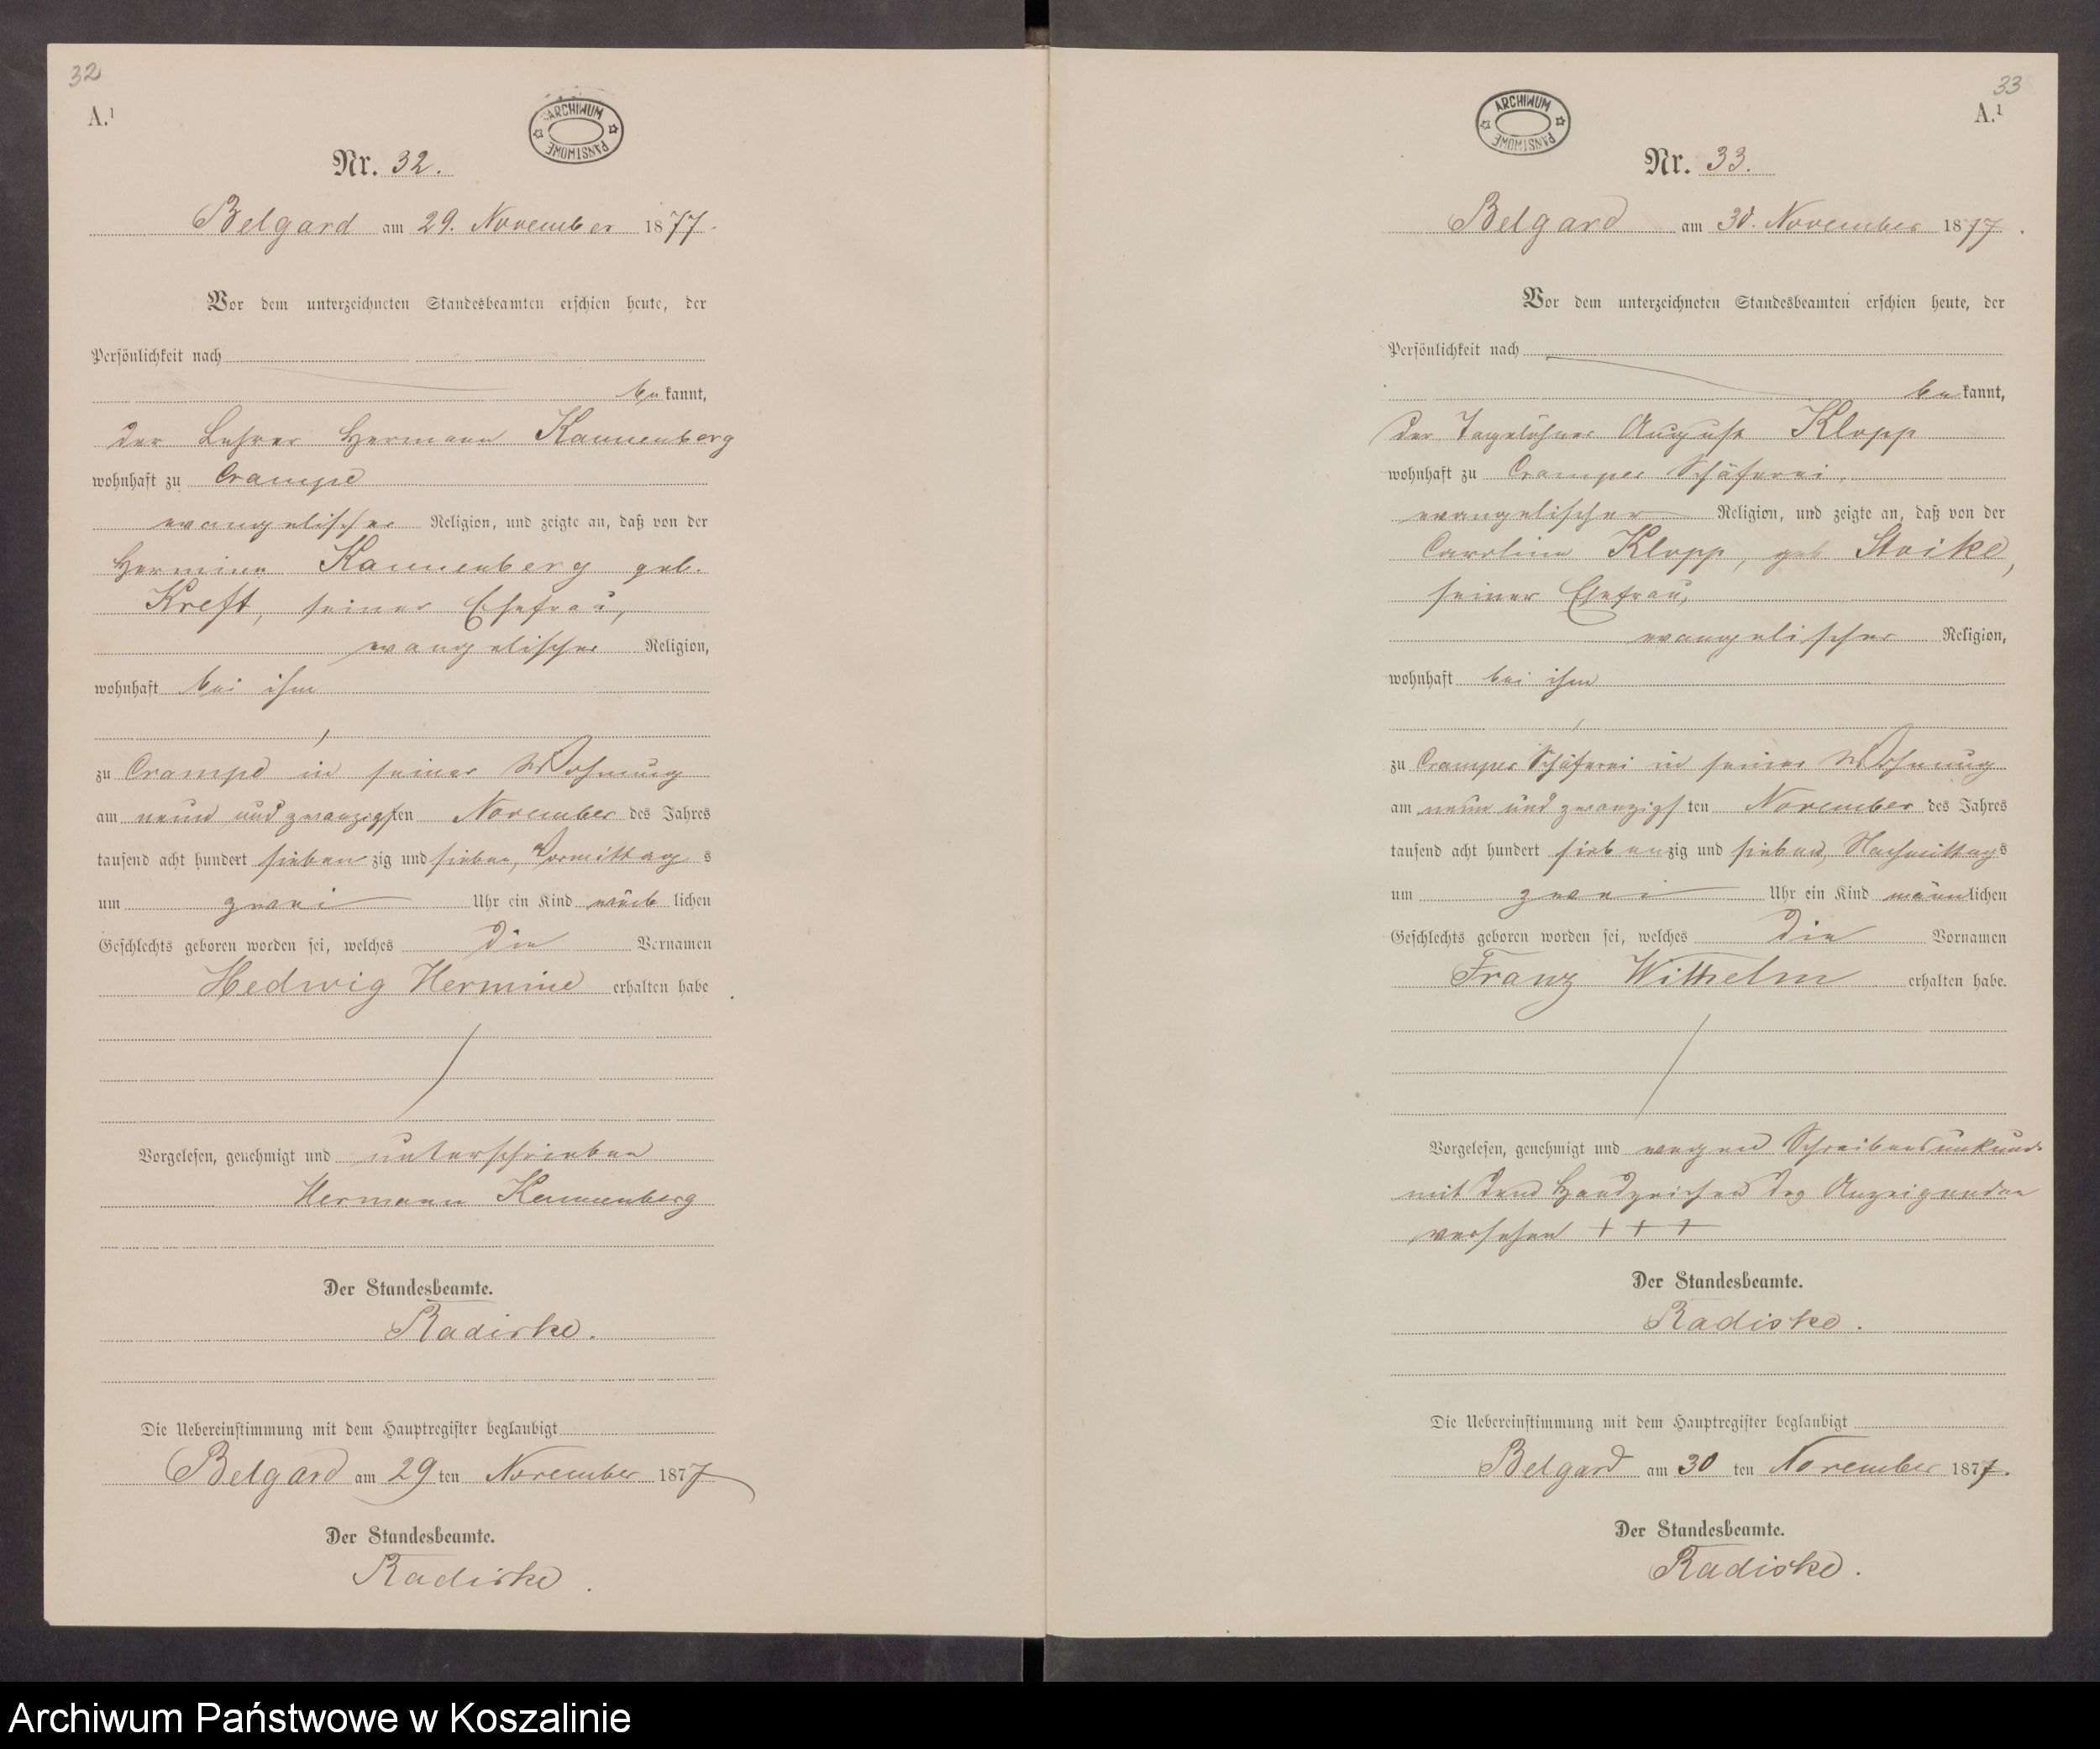 32
A.¹
ARCHIWUM PAŃSTWOWE
Nr. 32.
Belgard am 29. November 1877.
Vor dem unterzeichneten Standesbeamten erschien heute, der
Persönlichkeit nach
bekannt,
der Lehrer Hermann Kannenberg
wohnhaft zu Crampe
evangelischer Religion, und zeigte an, daß von der
Hermine Kannenberg geb.
Kreft, seiner Ehefrau,
evangelischer Religion,
wohnhaft bei ihm
,
zu Crampe in seiner Wohnung
am neun und zwanzigsten November des Jahres
tausend acht hundert siebenzig und sieben, Vormittags
um zwei Uhr ein Kind weiblichen
Geschlechts geboren worden sei, welches die Vornamen
Hedwig Hermine erhalten habe.
Vorgelesen, genehmigt und unterschrieben
Hermann Kannenberg
Der Standesbeamte.
Radiske.
Die Uebereinstimmung mit dem Hauptregister beglaubigt
Belgard am 29 ten November 1877
Der Standesbeamte.
Radiske.
33
A.¹
ARCHIWUM PAŃSTWOWE
Nr. 33.
Belgard am 30. November 1877.
Vor dem unterzeichneten Standesbeamten erschien heute, der
Persönlichkeit nach
bekannt,
der Tagelöhner August Klopp
wohnhaft zu Cramper Schäferei,
evangelischer Religion, und zeigte an, daß von der
Caroline Klopp, geb. Stoike,
seiner Ehefrau,
evangelischer Religion,
wohnhaft bei ihm
,
zu Cramper Schäferei in seiner Wohnung
am neun und zwanzigsten November des Jahres
tausend acht hundert siebenzig und sieben, Nachmittags
um zwei Uhr ein Kind männlichen
Geschlechts geboren worden sei, welches die Vornamen
Franz Wilhelm erhalten habe.
Vorgelesen, genehmigt und wegen Schreibensunkunde
mit dem Handzeichen des Anzeigenden
versehen + + +
Der Standesbeamte.
Radiske.
Die Uebereinstimmung mit dem Hauptregister beglaubigt
Belgard am 30 ten November 1877.
Der Standesbeamte.
Radiske.
Archiwum Państwowe w Koszalinie